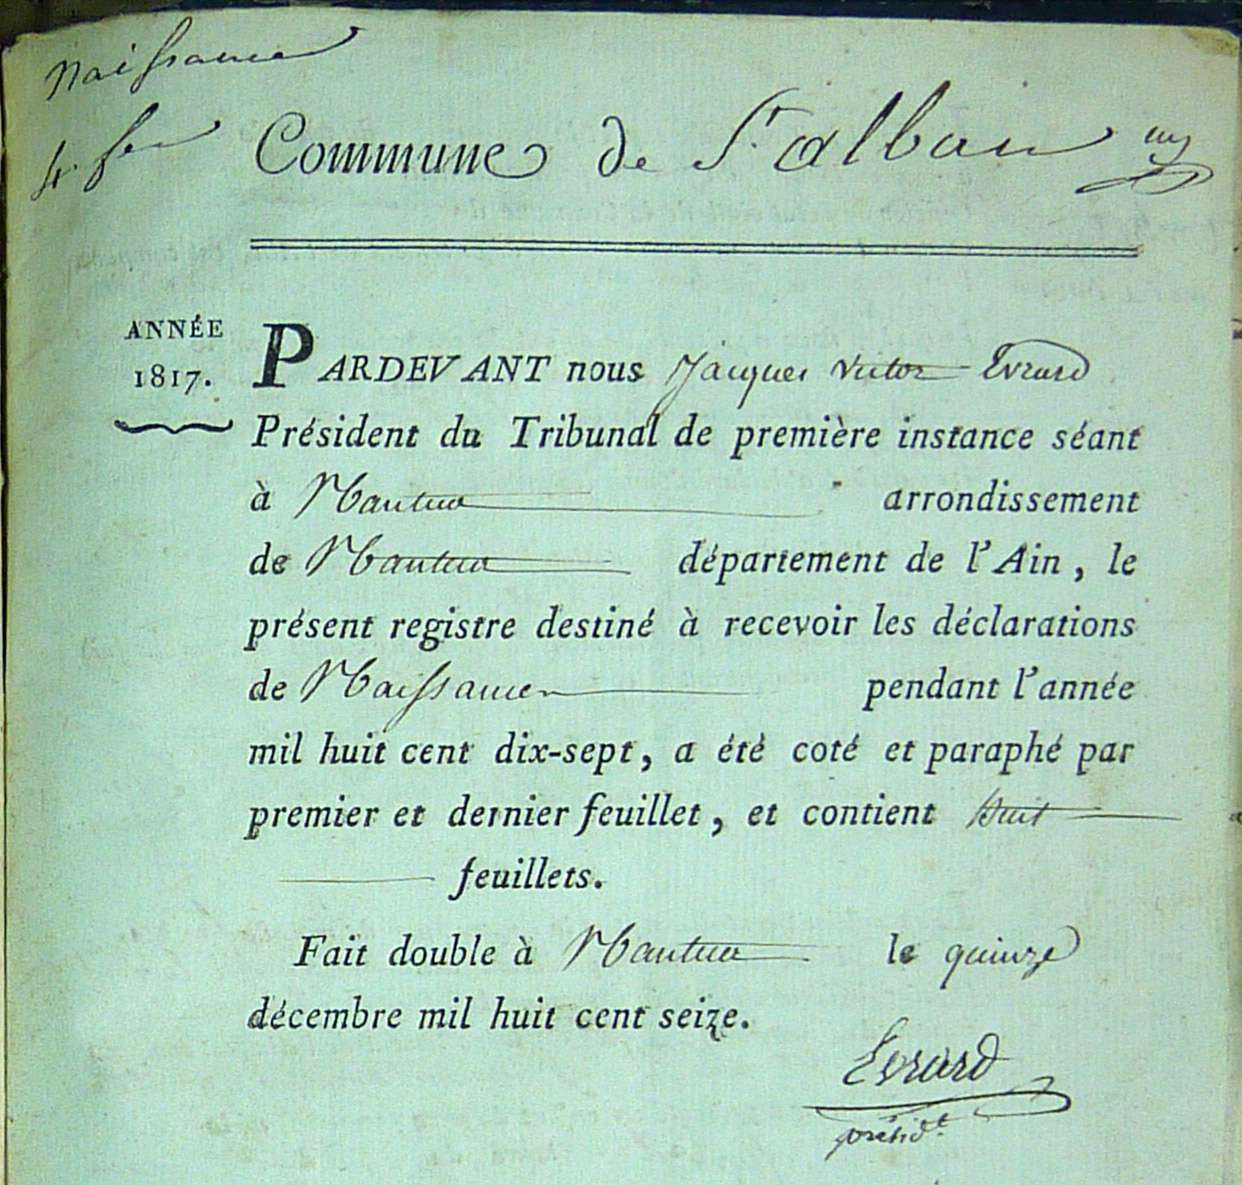 Naissance
Commune de St. alban
ANNÉE
1817.
PARDEVANT nous Jacques Victor Evrard
Président du Tribunal de première instance séant
à Nantua arrondissement
de Nantua département de l'Ain, le
présent registre destiné à recevoir les déclarations
de Naissances pendant l'année
mil huit cent dix-sept, a été coté et paraphé par
premier et dernier feuillet, et contient huit
feuillets.
Fait double à Nantua le quinze
décembre mil huit cent seize.
Evrard
présidt.